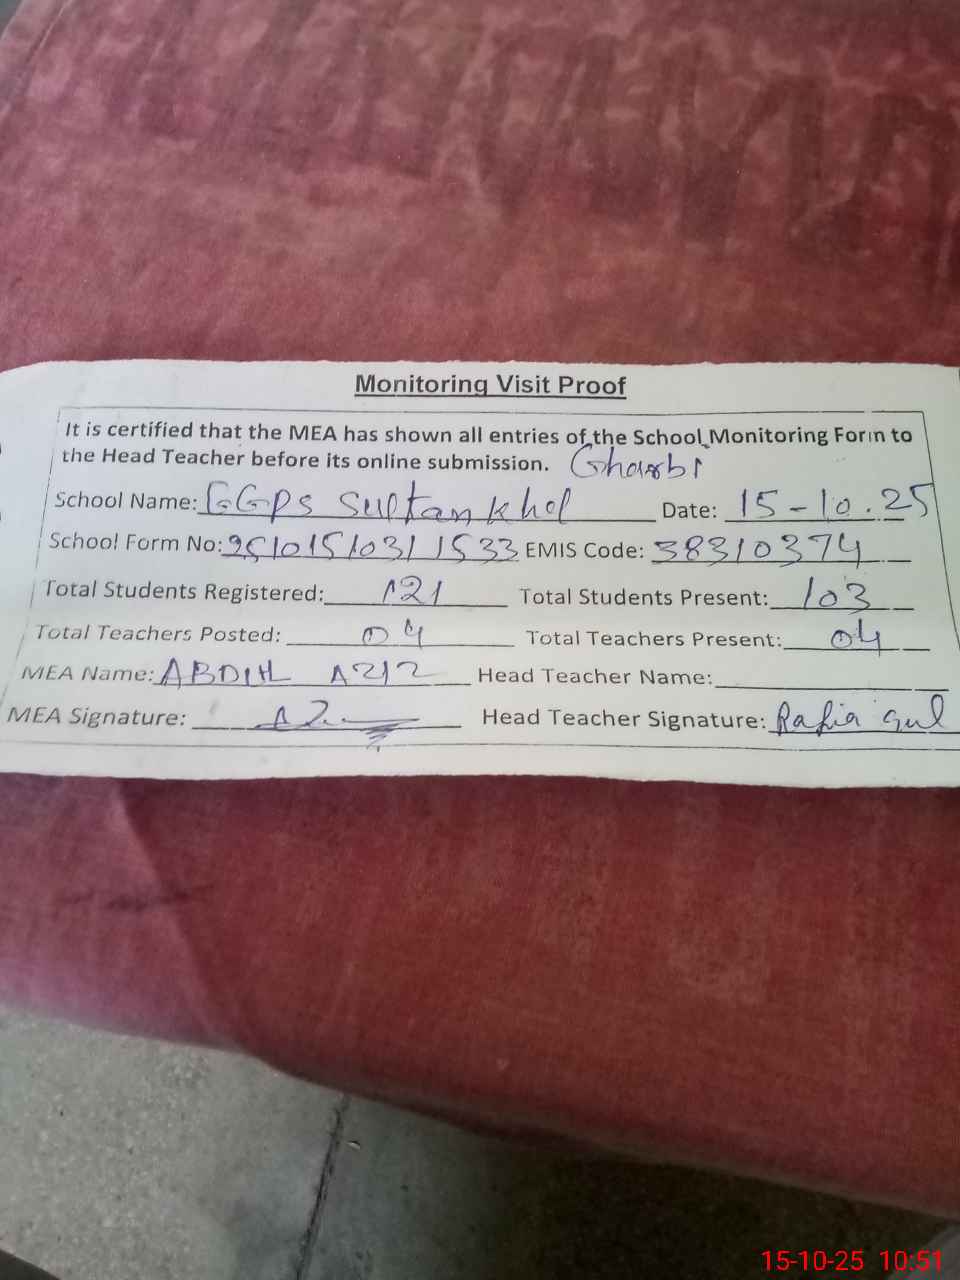 Monitoring Visit Proof
It is certified that the MEA has shown all entries of the School Monitoring Form to
the Head Teacher before its online submission. Gharbi
School Name: GGPS Sultan khel Date: 15-10.25
School Form No: 25101510311533 EMIS Code: 38310374
Total Students Registered: 121 Total Students Present: 103
Total Teachers Posted: 04 Total Teachers Present: 04
MEA Name: Head Teacher Name:
MEA Signature: Head Teacher Signature: Rafia Gul
15-10-25 10:51